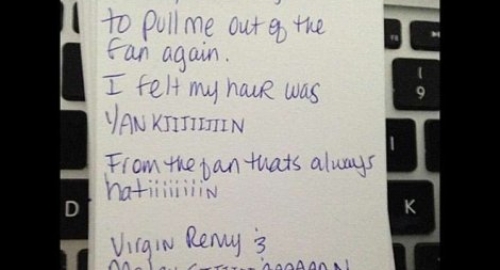 to pull me out of the
fan again.
I felt my haiR was
YANKIIIIIIIIN
From the fan thats always
hatiiiiiiiiN
Virgin Remy is
( 9
I
D
K